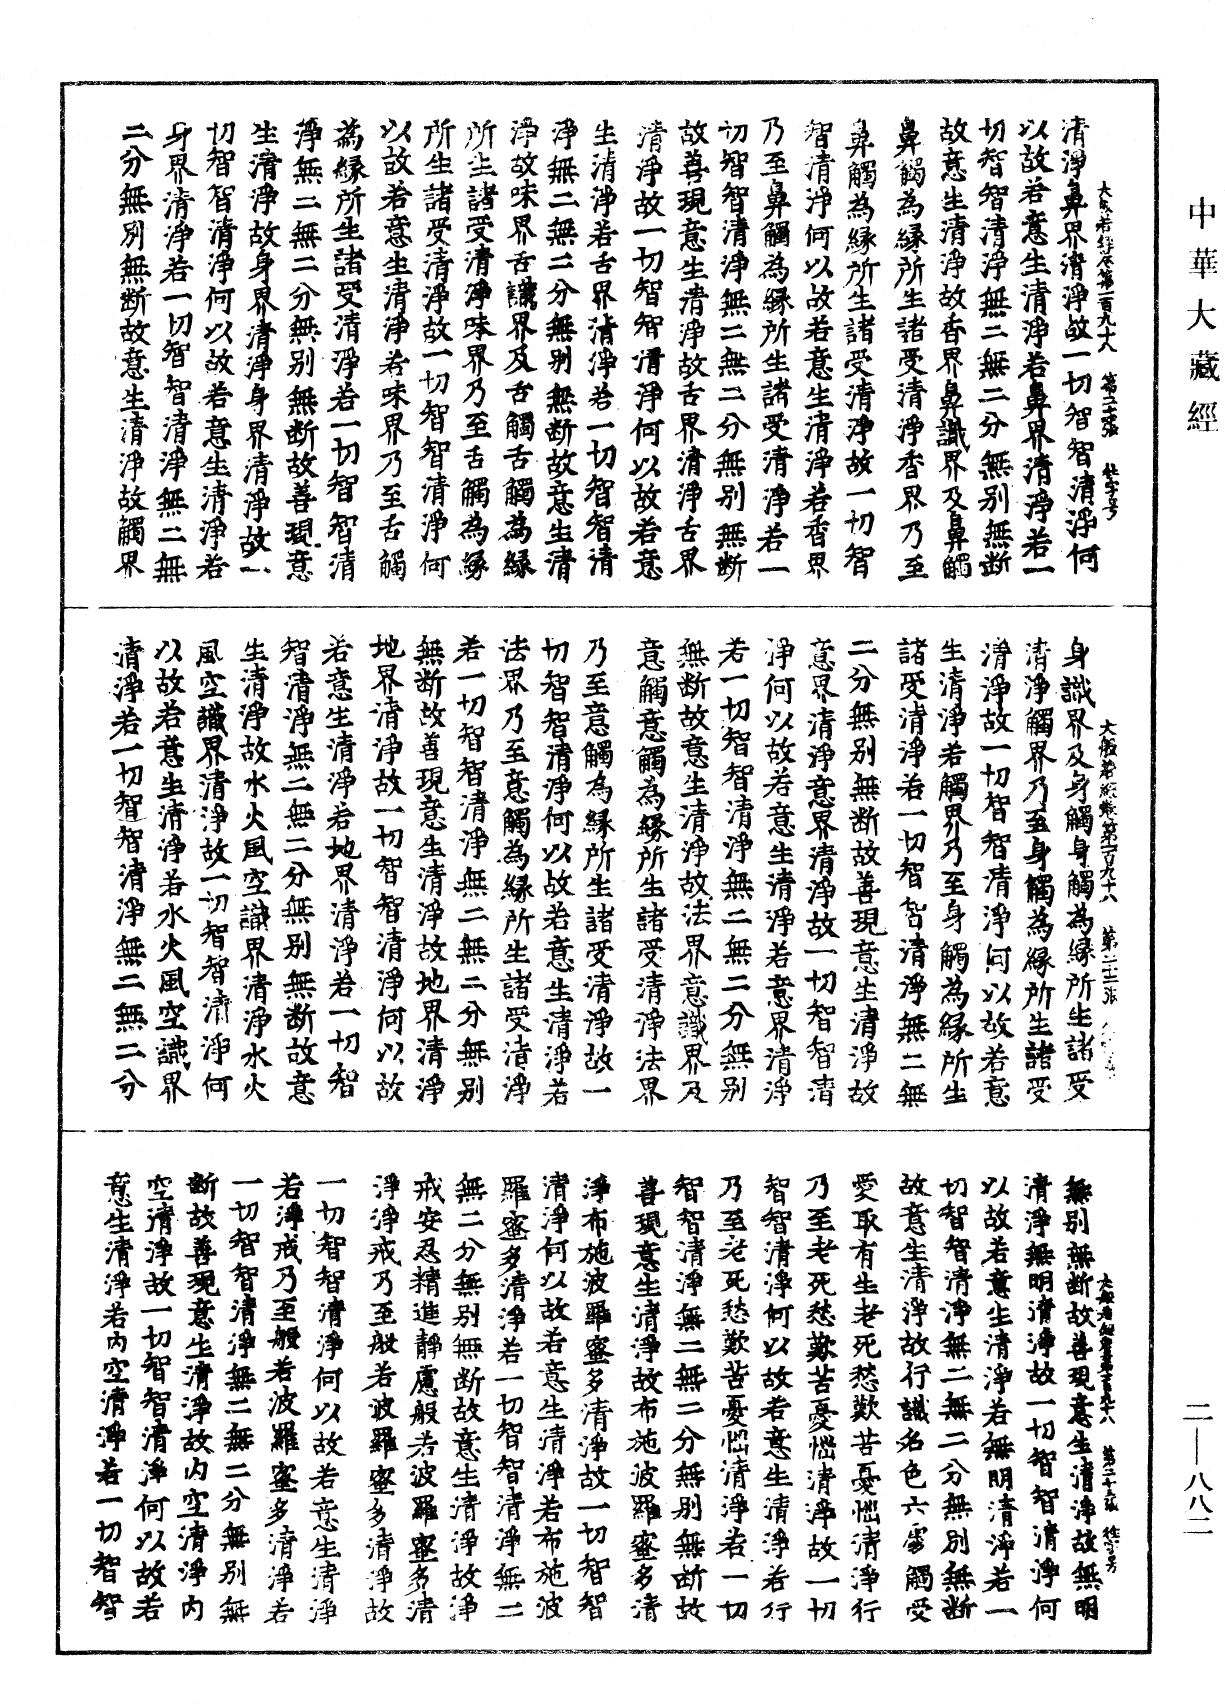 中華大藏經
二—八八二
大般若經卷第一百九十八
清淨鼻界清淨故一切智智清淨何
以故若意生清淨若鼻界清淨若一
切智智清淨無二無二分無別無斷
故意生清淨故香界鼻識界及鼻觸
鼻觸為緣所生諸受清淨香界乃至
鼻觸為緣所生諸受清淨故一切智
智清淨何以故若意生清淨若香界
乃至鼻觸為緣所生諸受清淨若一
切智智清淨無二無二分無別無斷
故善現意生清淨故舌界清淨舌界
清淨故一切智智清淨何以故若意
生清淨若舌界清淨若一切智智清
淨無二無二分無別無斷故意生清
淨故味界舌識界及舌觸舌觸為緣
所生諸受清淨味界乃至舌觸為緣
所生諸受清淨故一切智智清淨何
以故若意生清淨若味界乃至舌觸
為緣所生諸受清淨若一切智智清
淨無二無二分無別無斷故善現意
生清淨故身界清淨身界清淨故一
切智智清淨何以故若意生清淨若
身界清淨若一切智智清淨無二無
二分無別無斷故意生清淨故觸界
大般若經卷第一百九十八
身識界及身觸身觸為緣所生諸受
清淨觸界乃至身觸為緣所生諸受
清淨故一切智智清淨何以故若意
生清淨若觸界乃至身觸為緣所生
諸受清淨若一切智智清淨無二無
二分無別無斷故善現意生清淨故
意界清淨意界清淨故一切智智清
淨何以故若意生清淨若意界清淨
若一切智智清淨無二無二分無別
無斷故意生清淨故法界意識界及
意觸意觸為緣所生諸受清淨法界
乃至意觸為緣所生諸受清淨故一
切智智清淨何以故若意生清淨若
法界乃至意觸為緣所生諸受清淨
若一切智智清淨無二無二分無別
無斷故善現意生清淨故地界清淨
地界清淨故一切智智清淨何以故
若意生清淨若地界清淨若一切智
智清淨無二無二分無別無斷故意
生清淨故水火風空識界清淨水火
風空識界清淨故一切智智清淨何
以故若意生清淨若水火風空識界
清淨若一切智智清淨無二無二分
大般若經卷第一百九十八
無別無斷故善現意生清淨故無明
清淨無明清淨故一切智智清淨何
以故若意生清淨若無明清淨若一
切智智清淨無二無二分無別無斷
故意生清淨故行識名色六處觸受
愛取有生老死愁歎苦憂惱清淨行
乃至老死愁歎苦憂惱清淨故一切
智智清淨何以故若意生清淨若行
乃至老死愁歎苦憂惱清淨若一切
智智清淨無二無二分無別無斷故
善現意生清淨故布施波羅蜜多清
淨布施波羅蜜多清淨故一切智智
清淨何以故若意生清淨若布施波
羅蜜多清淨若一切智智清淨無二
無二分無別無斷故意生清淨故淨
戒安忍精進靜慮般若波羅蜜多清
淨淨戒乃至般若波羅蜜多清淨故
一切智智清淨何以故若意生清淨
若淨戒乃至般若波羅蜜多清淨若
一切智智清淨無二無二分無別無
斷故善現意生清淨故內空清淨內
空清淨故一切智智清淨何以故若
意生清淨若內空清淨若一切智智